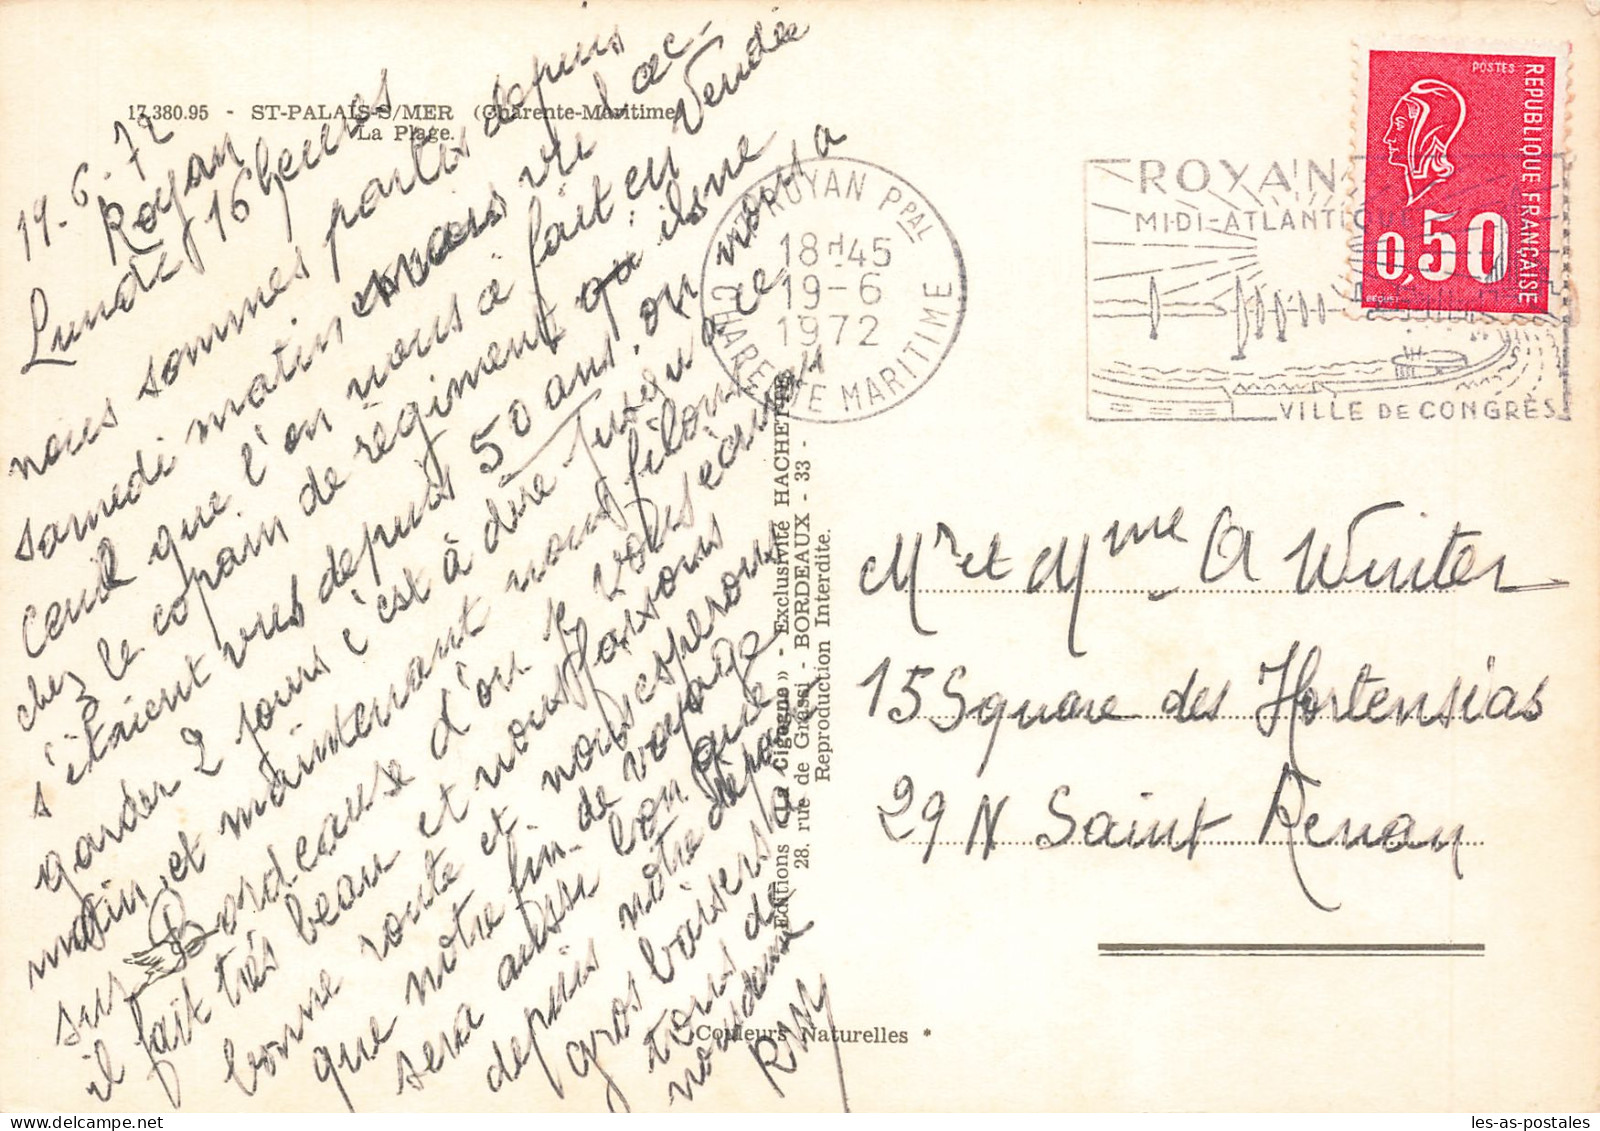 17.380.95 - ST-PALAIS-S/MER (Charente-Maritime)
La Plage.
19.6.72
Royan
Lundi 16 heures
nous sommes partis depuis
samedi matin nous vu l'ac-
cueil que l'on nous a fait en Vendée
chez le copain de régiment qu'ils ne
s'étaient vus depuis 50 ans, on nous a
garder 2 jours c'est à dire jusqu'a ce
matin, et maintenant nous filons
sur Bordeaux d'ou je vous écris
il fait très beau et nous faisons
bonne route et nous esperons
que notre fin de voyage
sera aussi bon que
depuis notre départ
gros baisers à
tous de
nous deux
RM
Editions « La Cigogne » - Exclusivité HACHETTE
28. rue de Grassi - BORDEAUX - 33 -
Reproduction Interdite.
Couleurs Naturelles *
17 ROYAN PPAL
18H45
19-6
1972
CHARENTE MARITIME
ROYAN
MIDI-ATLANTIQUE
VILLE DE CONGRÈS
POSTES
REPUBLIQUE FRANÇAISE
0,50
BEQUET
Mr et Mme A Winter
15 Square des Hortensias
29N Saint Renan
les-as-postales